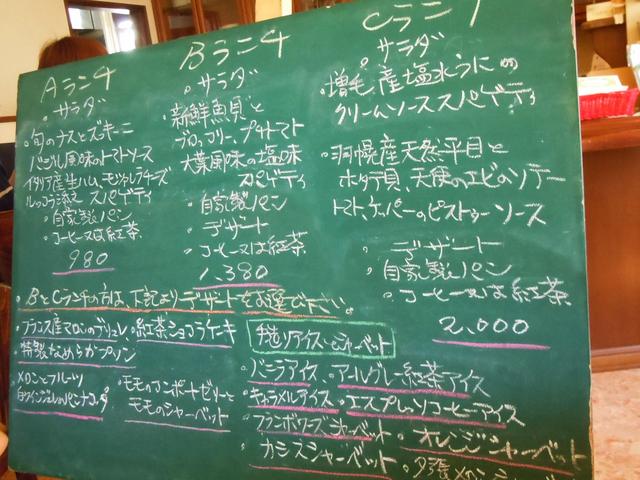 Aランチ
・サラダ
・旬のナスとズッキーニ
バジル風味のトマトソース
イタリア産生ハム、モッツァレラチーズ
ルッコラ添え スパゲティ
・自家製パン
・コーヒー又は紅茶
980
Bランチ
・サラダ
・新鮮魚貝と
ブロッコリー、プチトマト
大葉風味の塩味
スパゲティ
・自家製パン
・デザート
・コーヒー又は紅茶
1,380
Cランチ
・サラダ
・増毛産塩水うにの
クリームソーススパゲティ
・羽幌産天然平目と
ホタテ貝、天使のエビのソテー
トマト、ケーパーのピストゥーソース
・デザート
・自家製パン
・コーヒー又は紅茶
2,000
・BとCランチの方は、下記よりデザートをお選び下さい。
・フランス産マロンのブリュレ
・紅茶ショコラケーキ
・特製なめらかプリン
・メロンとフルーツ
・モモのコンポートゼリーと
モモのシャーベット
手造りアイスとシャーベット
・バニラアイス
・アールグレー紅茶アイス
・キャラメルアイス
・エスプレッソコーヒーアイス
・フランボワーズシャーベット
・オレンジシャーベット
・カシスシャーベット
・夕張メロンシャーベット